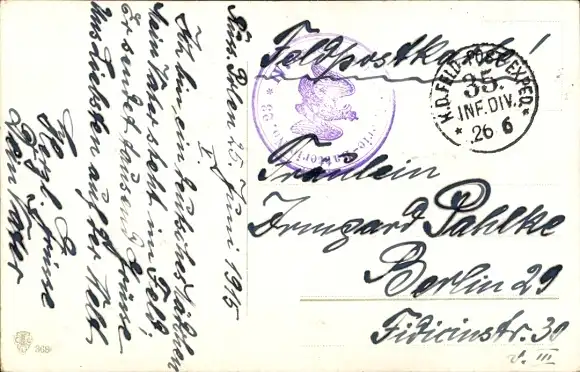 Feldpostkarte!
K.D. FELD-POSTEXPED.
35.
INF. DIV.
26 6
Fräulein
Irmgard Pahlke
Berlin 29
Fidicinstr. 30
v. III
Russ Polen 25 Juni 1915
I.
Ich bin ein deutsches Mädchen
Mein Vater steht im Feld,
Er sendet tausend Grüße
Ins Liebsten auf der Welt
Herzl. Grüße
Dein Vater
368